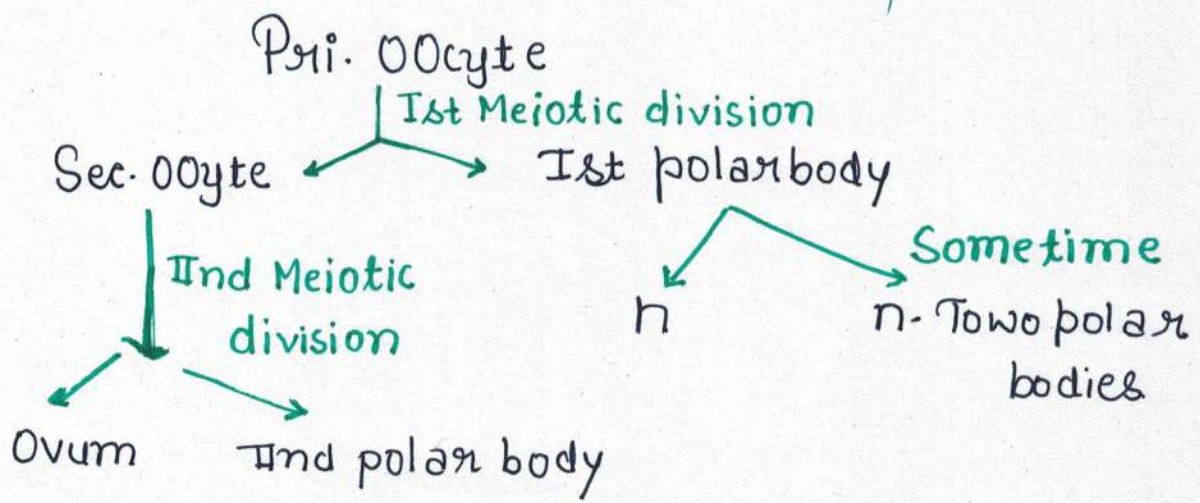 Pri. OOcyte
Ist Meiotic division
Sec. OOyte
Ist polarbody
Sometime
IInd Meiotic
division
n
n- Towo polar
bodies
Ovum
IInd polar body